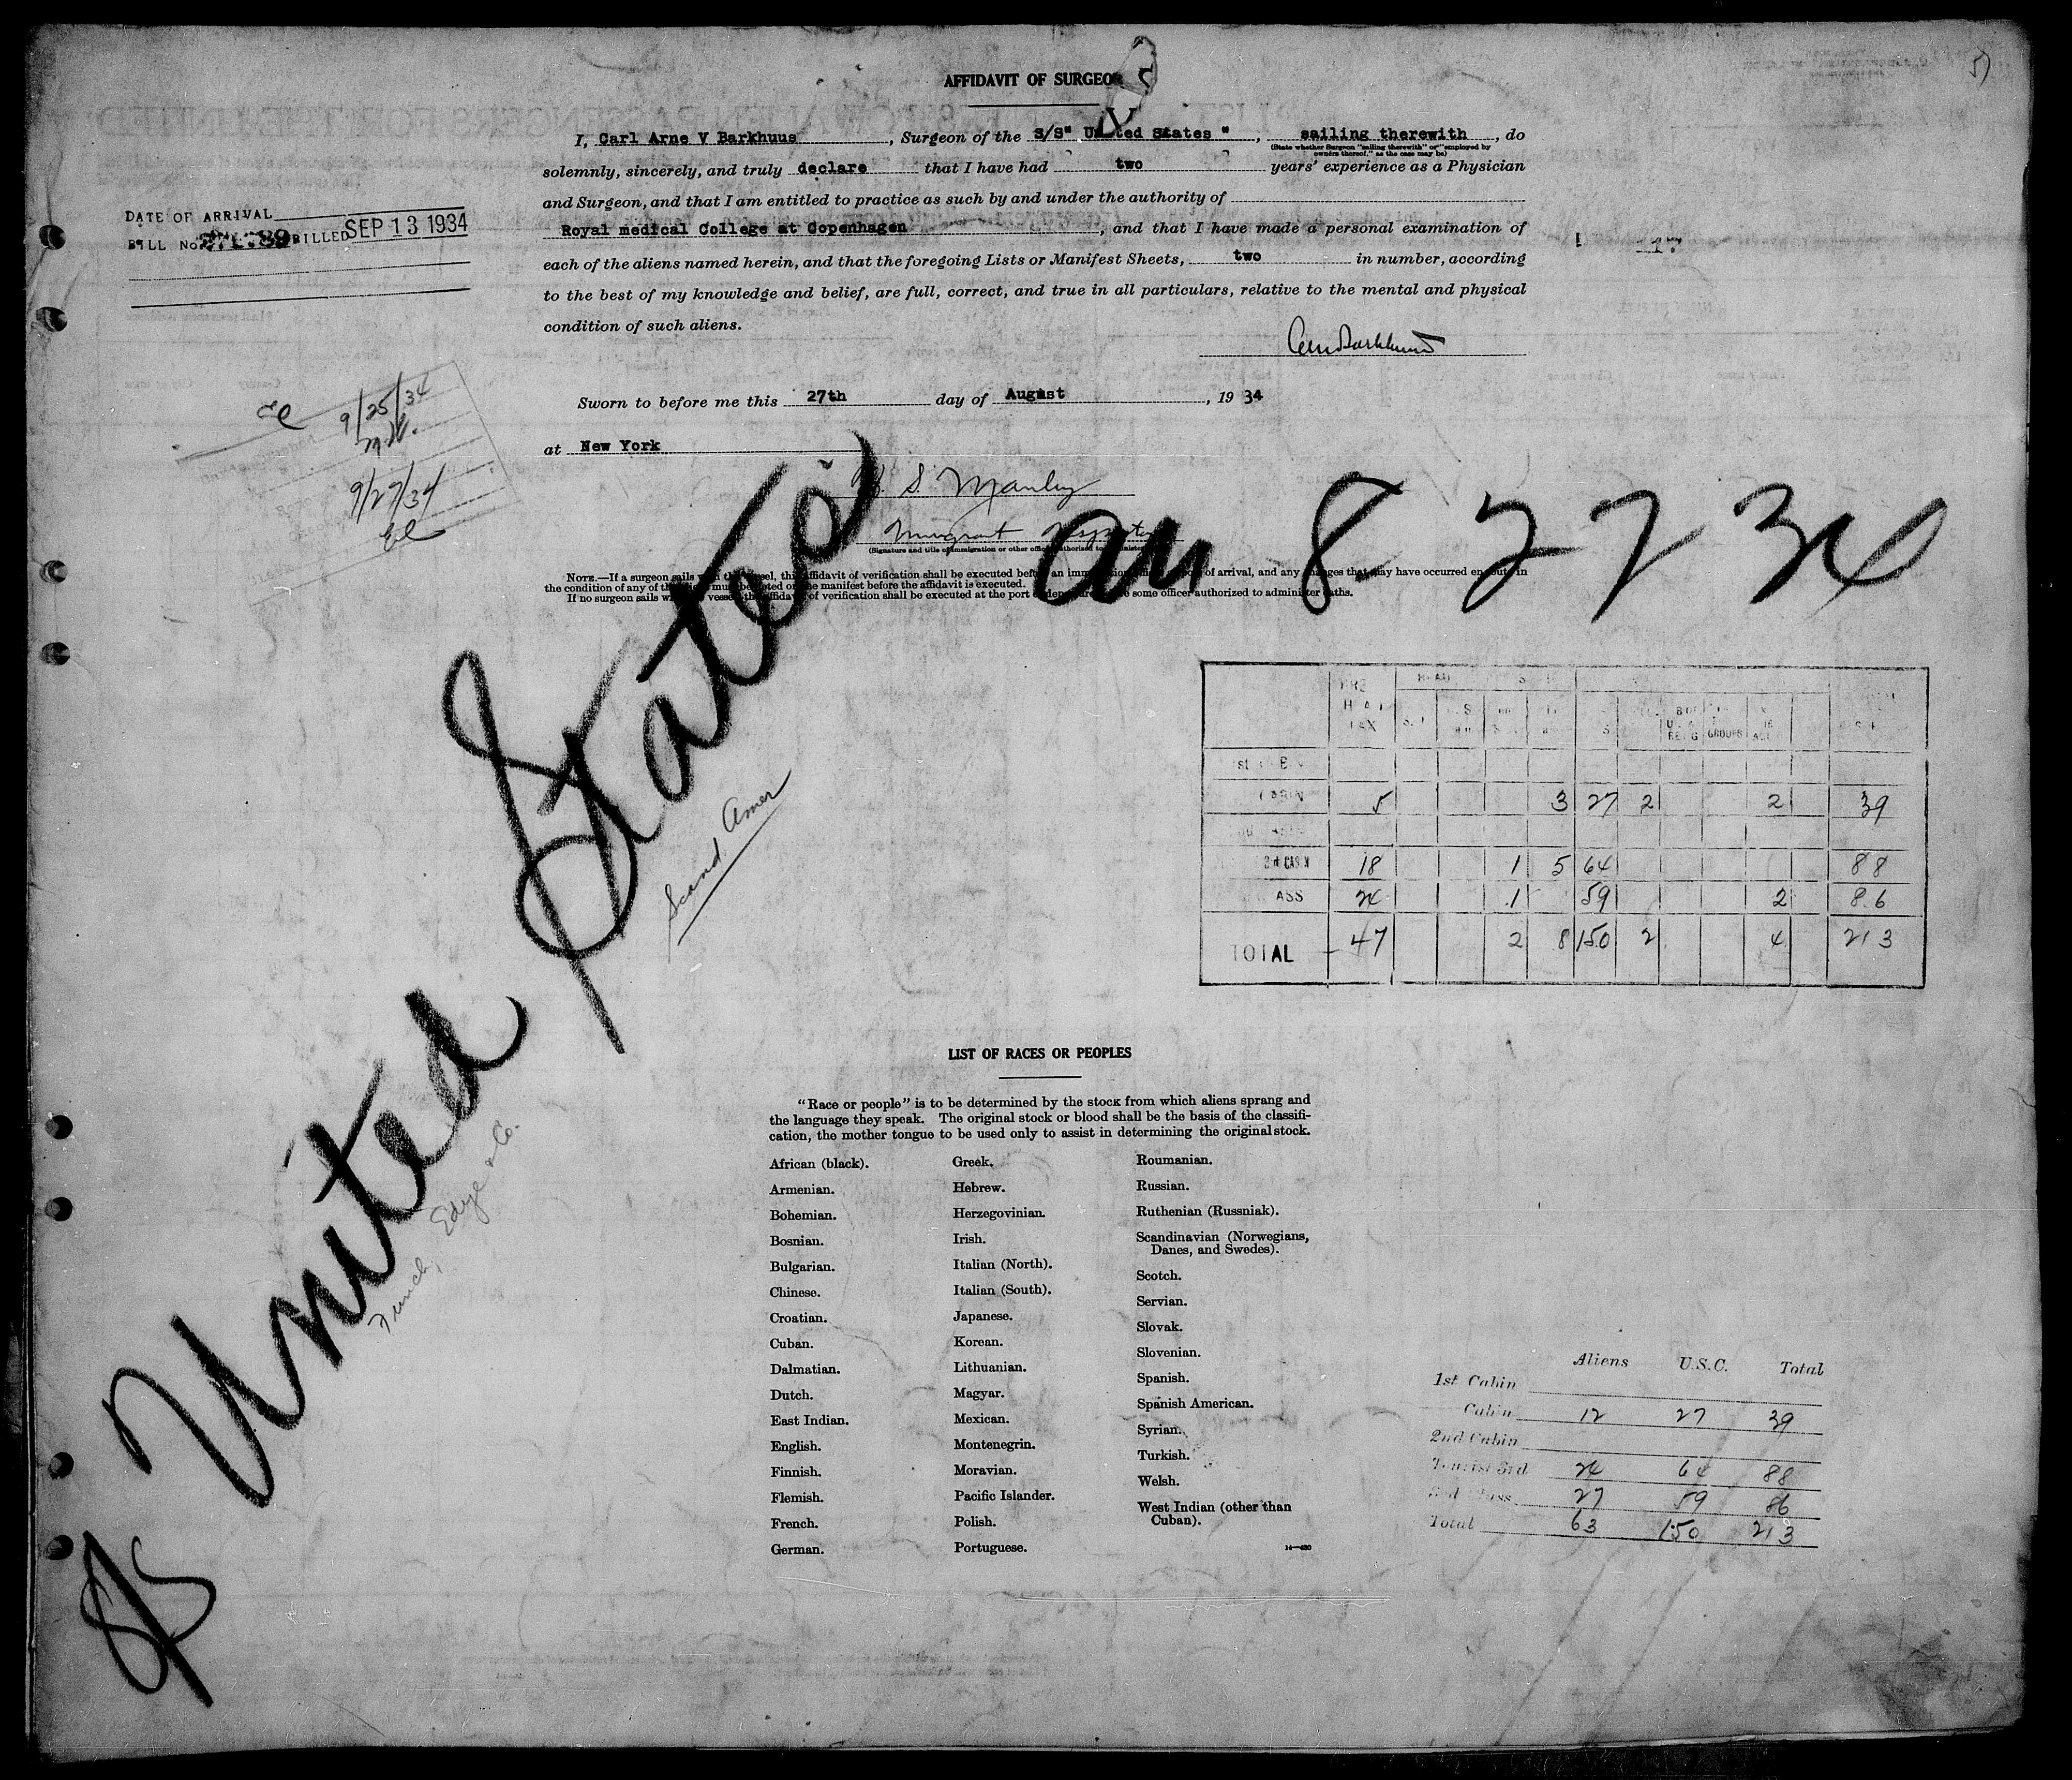 5)
AFFIDAVIT OF SURGEON
I, Carl Arne V Barkhuus, Surgeon of the S/S" United States ", sailing therewith, do
(State whether Surgeon "sailing therewith" or "employed by
owners thereof," as the case may be)
solemnly, sincerely, and truly declare that I have had two years' experience as a Physician
and Surgeon, and that I am entitled to practice as such by and under the authority of
Royal medical College at Copenhagen, and that I have made a personal examination of
each of the aliens named herein, and that the foregoing Lists or Manifest Sheets, two in number, according
to the best of my knowledge and belief, are full, correct, and true in all particulars, relative to the mental and physical
condition of such aliens.
Sworn to before me this 27th day of August, 19 34
at New York
S. Manley
(Signature and title of immigration or other officer authorized to administer
NOTE.—If a surgeon sails with the vessel, this affidavit of verification shall be executed before an immigration officer at port of arrival, and any changes that may have occurred en route in
the condition of any of the aliens must be noted on the manifest before the affidavit is executed.
If no surgeon sails with the vessel, the affidavit of verification shall be executed at the port of departure before some officer authorized to administer oaths.
DATE OF ARRIVAL
BILL No. BILLED SEP 13 1934
9/25/34
9/27/34
El
SS United States
arr 8 27 34
Scand Amer
Funch, Edye & Co.
HEAD
TAX
GROUPS
CABIN 5 3 27 2 2 39
18 1 5 64 88
ASS 24 1 59 2 86
TOTAL 47 2 8 150 2 4 213
LIST OF RACES OR PEOPLES
"Race or people" is to be determined by the stock from which aliens sprang and
the language they speak. The original stock or blood shall be the basis of the classifi-
cation, the mother tongue to be used only to assist in determining the original stock.
African (black).
Armenian.
Bohemian.
Bosnian.
Bulgarian.
Chinese.
Croatian.
Cuban.
Dalmatian.
Dutch.
East Indian.
English.
Finnish.
Flemish.
French.
German.
Greek.
Hebrew.
Herzegovinian.
Irish.
Italian (North).
Italian (South).
Japanese.
Korean.
Lithuanian.
Magyar.
Mexican.
Montenegrin.
Moravian.
Pacific Islander.
Polish.
Portuguese.
Roumanian.
Russian.
Ruthenian (Russniak).
Scandinavian (Norwegians,
Danes, and Swedes).
Scotch.
Servian.
Slovak.
Slovenian.
Spanish.
Spanish American.
Syrian.
Turkish.
Welsh.
West Indian (other than
Cuban).
Aliens U.S.C. Total
1st Cabin
Cabin 12 27 39
2nd Cabin
Tourist 3rd 24 64 88
27 59 86
Total 63 150 213